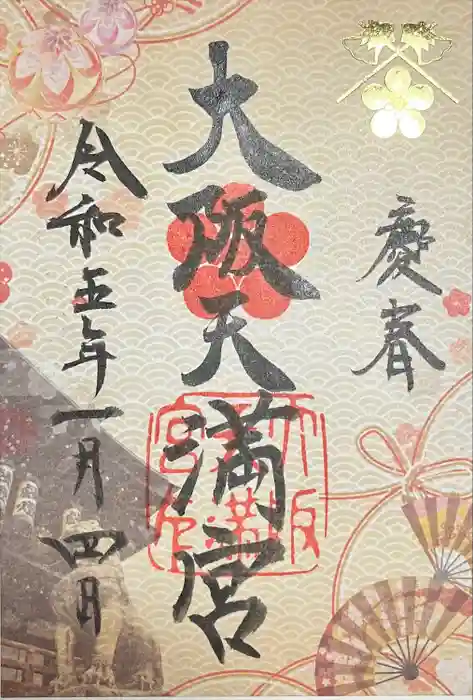 慶春
大阪天満宮
令和五年一月四日